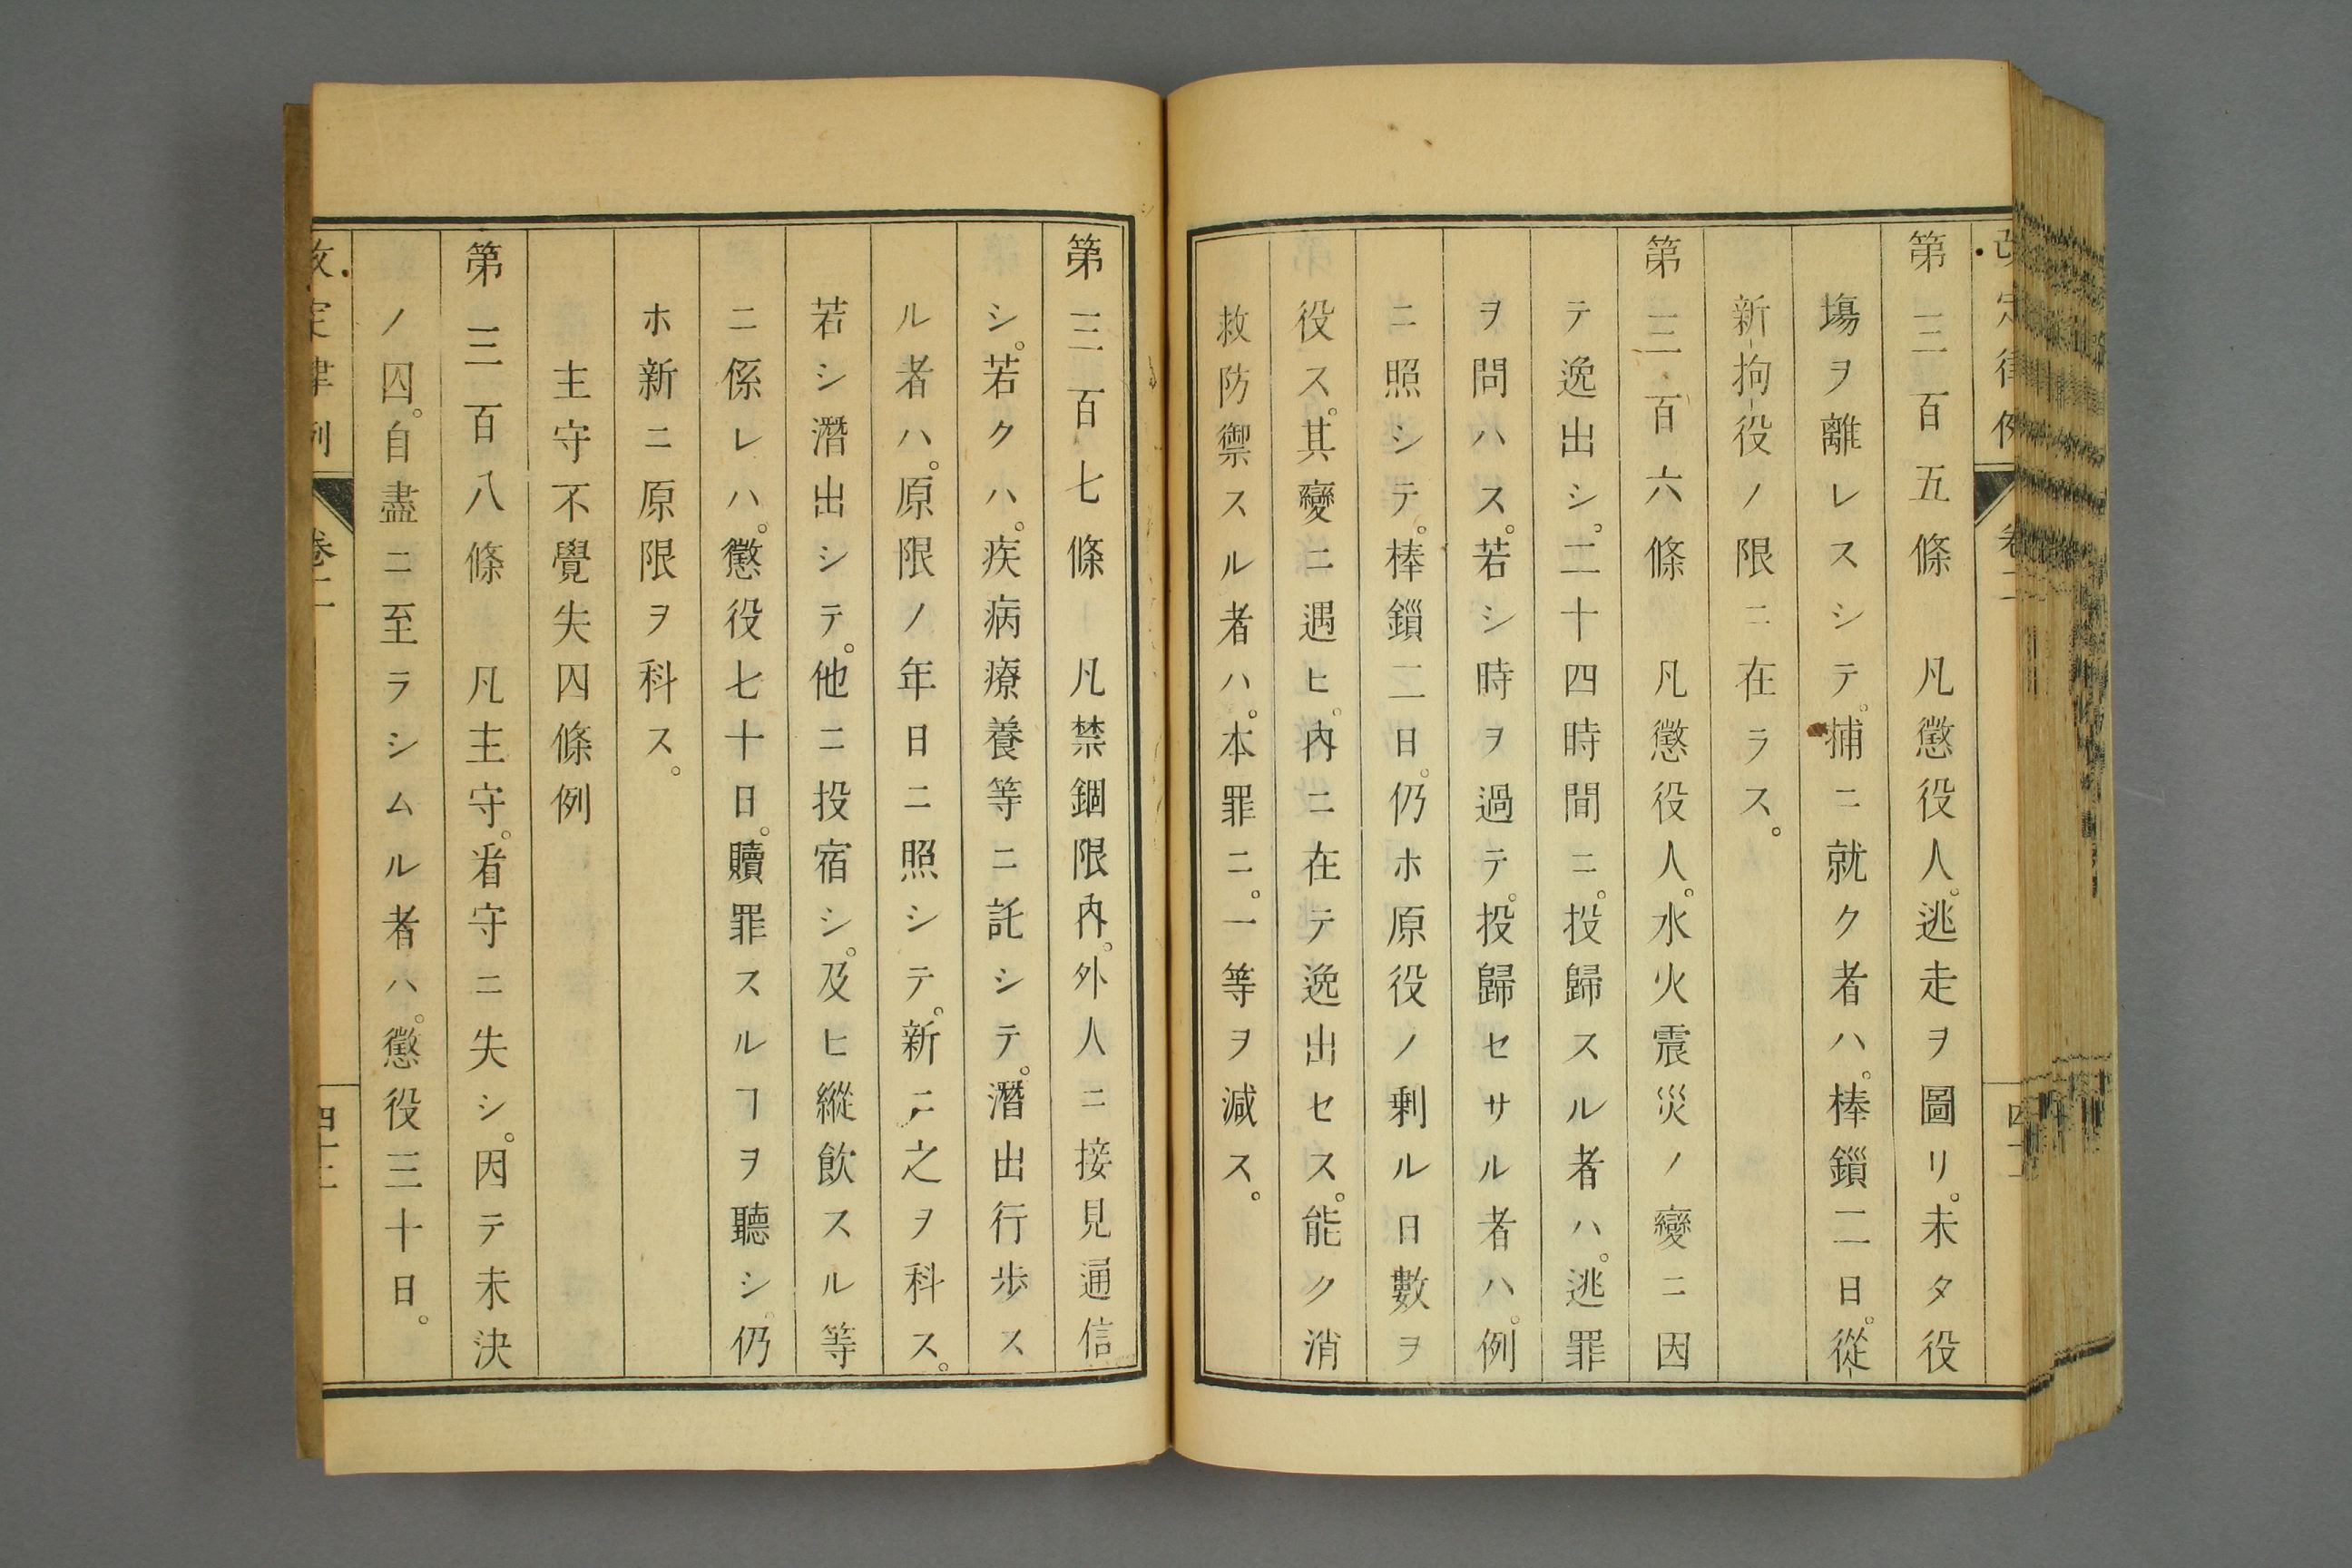 第三百五條　凡懲役人。逃走ヲ圖リ。未タ役
塲ヲ離レスシテ。捕ニ就ク者ハ。棒鎖二日。從
新拘役ノ限ニ在ラス。
第三百六條　凡懲役人。水火震災ノ變ニ因
テ逸出シ。二十四時間ニ。投歸スル者ハ。逃罪
ヲ問ハス。若シ時ヲ過テ。投歸セサル者ハ。例
ニ照シテ。棒鎖二日。仍ホ原役ノ剰ル日數ヲ
役ス。其變ニ遇ヒ。內ニ在テ逸出セス。能ク消
救防禦スル者ハ。本罪ニ。一等ヲ減ス。
第三百七條　凡禁錮限內。外人ニ接見通信
シ。若クハ。疾病療養等ニ託シテ。潛出行歩ス
ル者ハ。原限ノ年日ニ照シテ。新ニ之ヲ科ス。
若シ潛出シテ。他ニ投宿シ。及ヒ縱飮スル等
ニ係レハ。懲役七十日。贖罪スルヿヲ聽シ。仍
ホ新ニ原限ヲ科ス。
主守不覺失囚條例
第三百八條　凡主守。看守ニ失シ。因テ未決
ノ囚。自盡ニ至ラシムル者ハ。懲役三十日。
改定律例　卷二